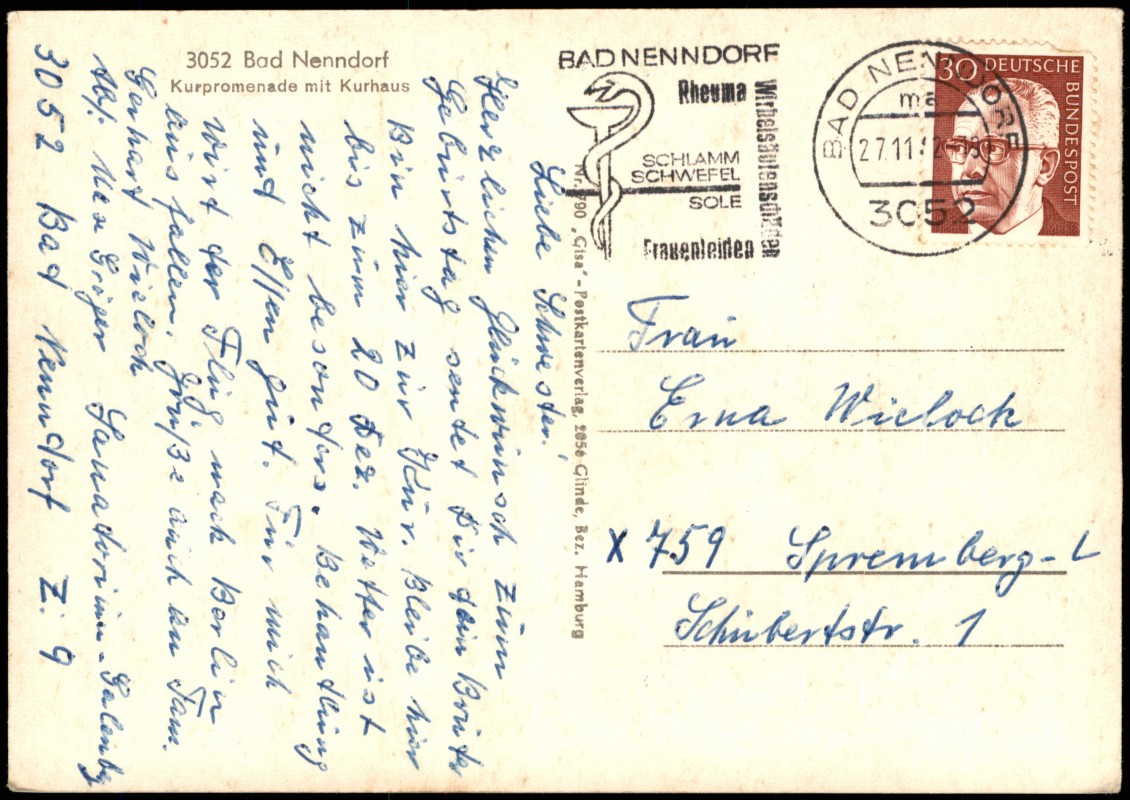 3052 Bad Nenndorf
Kurpromenade mit Kurhaus
BAD NENNDORF
Rheuma
Wirbelsäulenschäden
SCHLAMM
SCHWEFEL
SOLE
Frauenleiden
BAD NENNDORF
ma
27.11.72
3052
30 DEUTSCHE
BUNDESPOST
Liebe Schwester!
Herzlichen Glückwunsch zum
Geburtstag sendet Dir dein Bruder
Bin hier zur Kur. Bleibe hier
bis zum 20 Dez. Wetter ist
nicht besonders. Behandlung
und Essen gut. Für mich
wird der Flug nach Berlin
aus fallen. Grüße auch an Fam.
Gerhart Wielock
Abs. Max Sanatorium
3052 Bad Nenndorf Z. 9
Nr. 790 „Gisa"-Postkartenverlag, 2056 Glinde, Bez. Hamburg
Frau
Erna Wielock
X 759 Spremberg-L
Schubertstr. 1